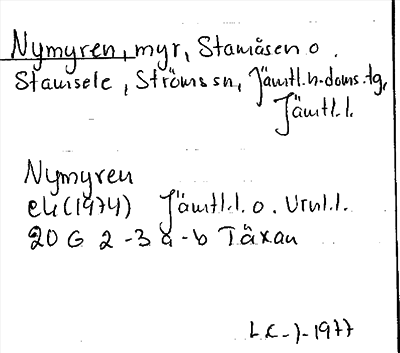 Nymyren, myr, Stamåsen o.
Stamsele, Ströms sn, Jämtl. n. doms. tg,
Jämtl. l.
Nymyren
ek (1974) Jämtl. l. o. Vrnl. l.
20 G 2-3 a-b Täxan
1977